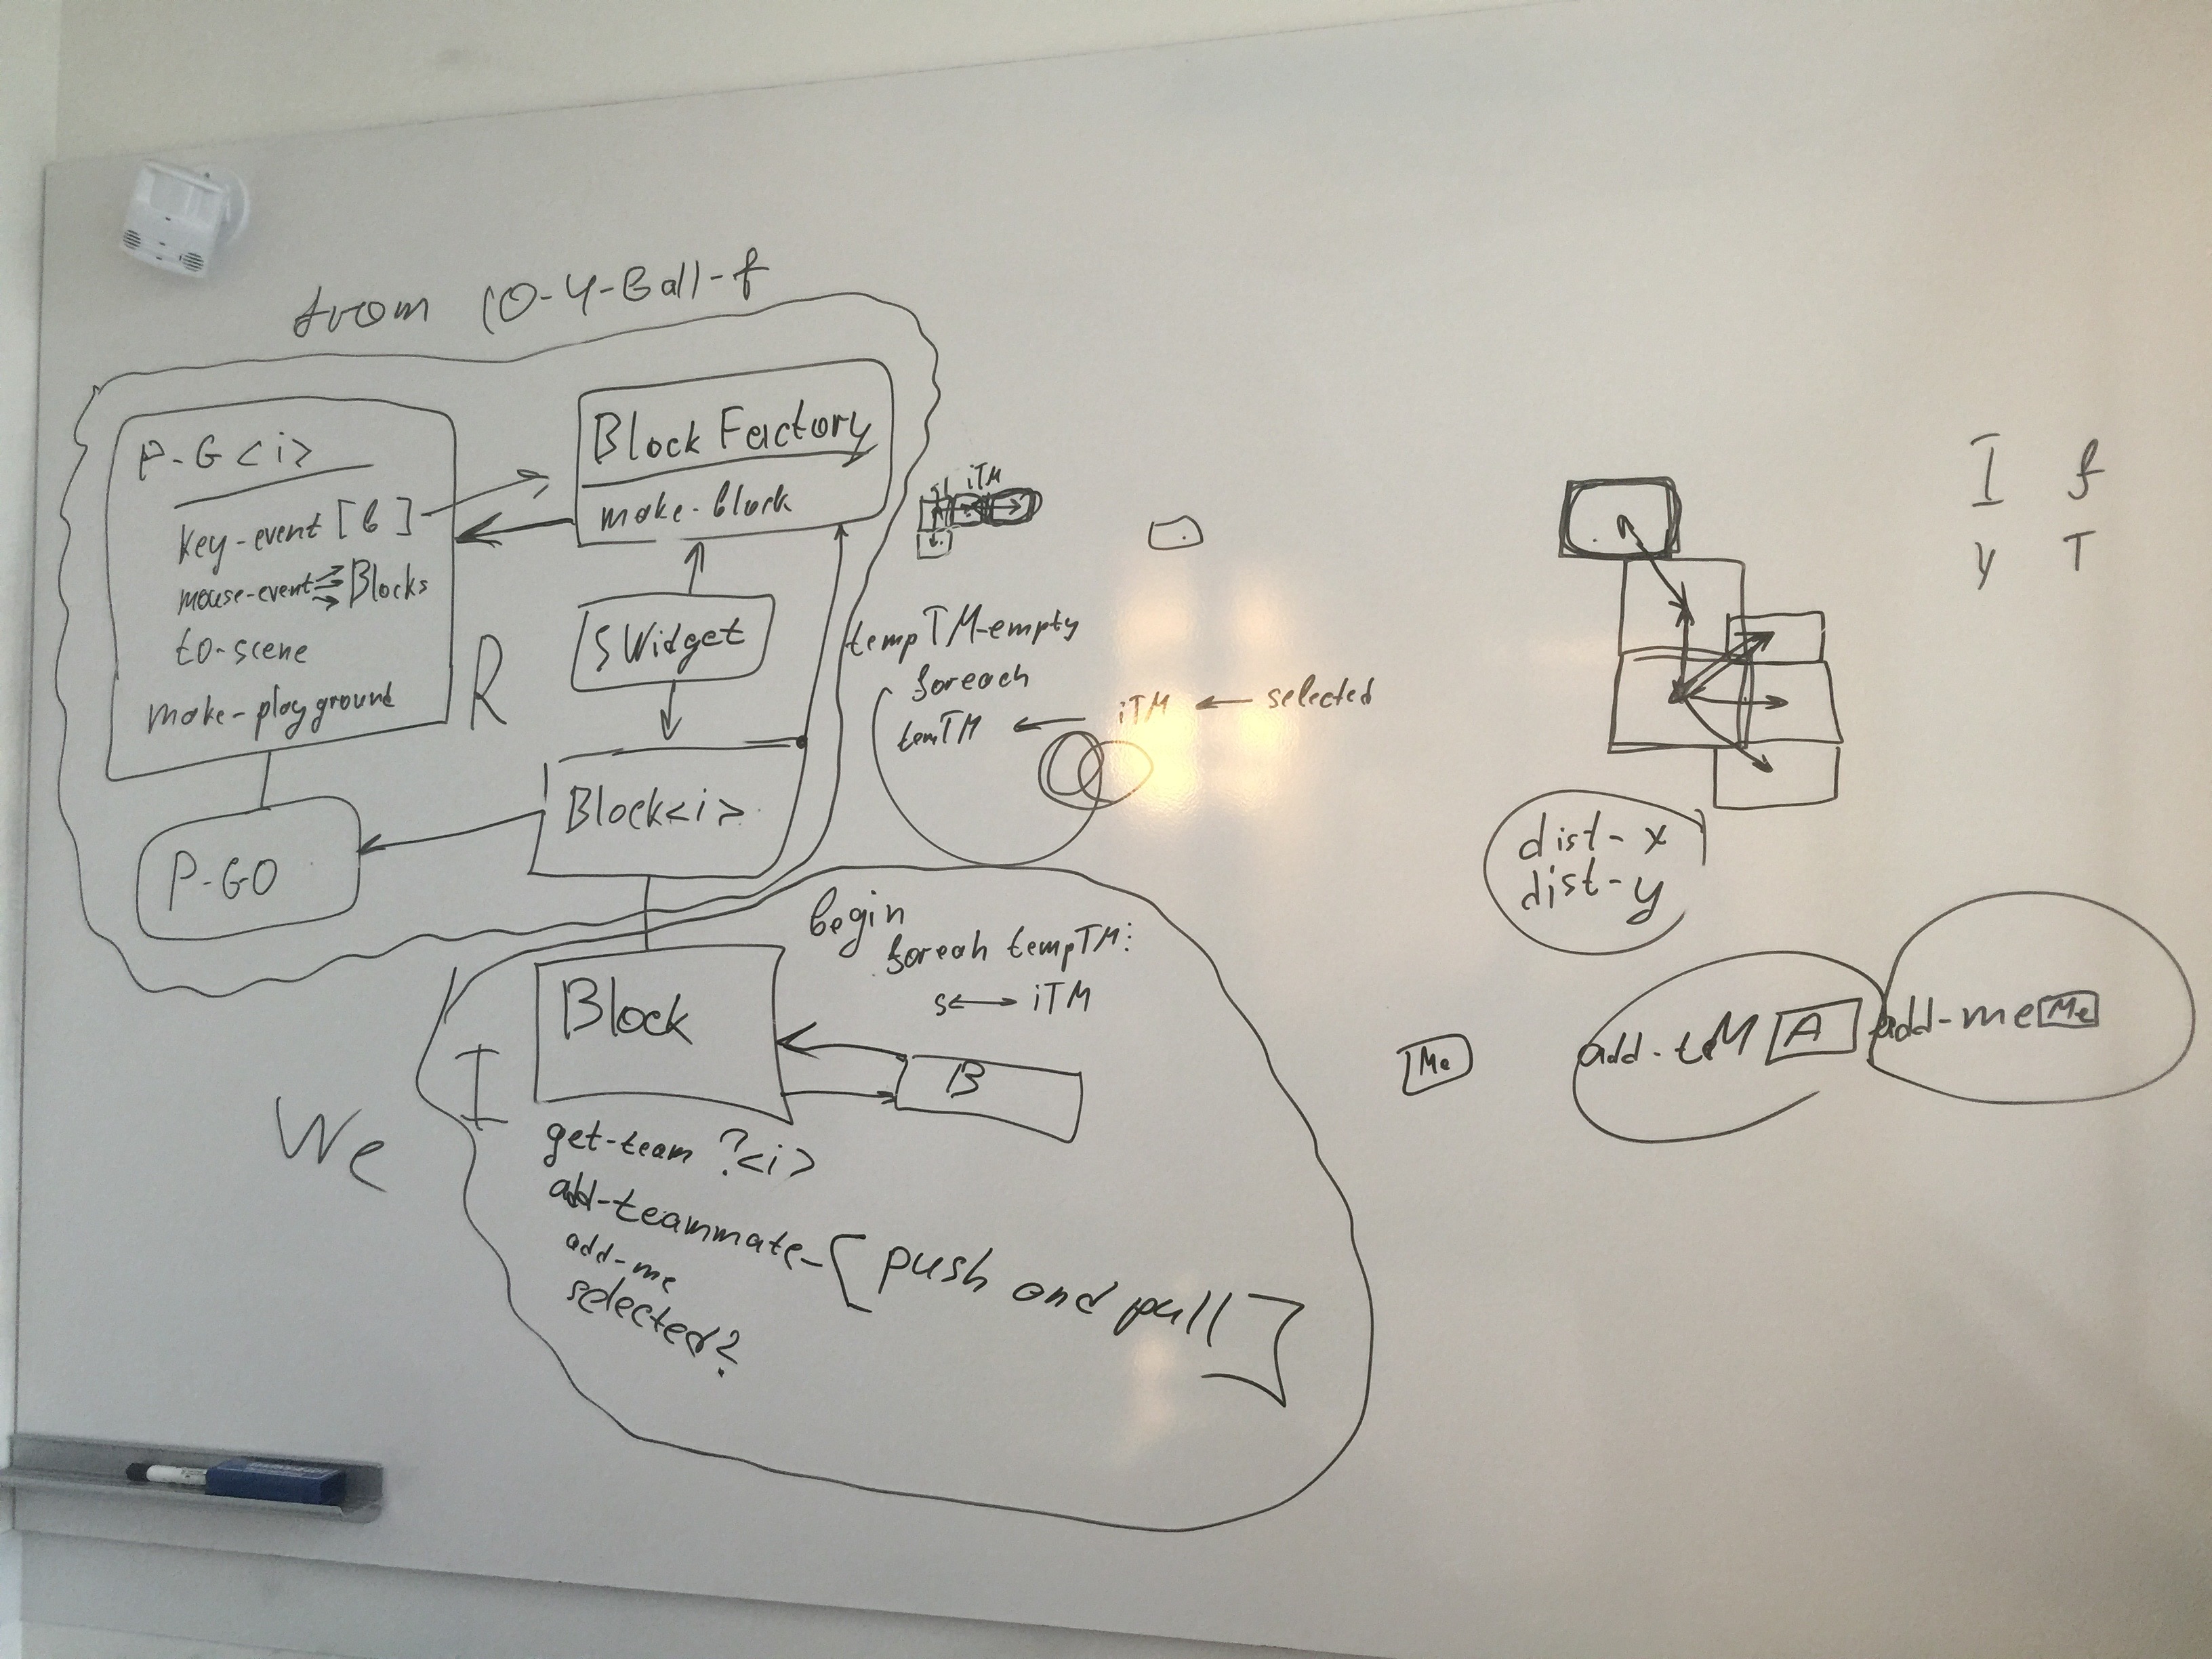 from 10-4-Ball-f
P-G<i>
key-event [b]
mouse-event Blocks
to-scene
make-playground
P-GO
R
Block Factory
make-block
SWidget
Block<i>
iTM
tempTM-empty
foreach
temTM ← iTM ← selected
begin
foreah tempTM:
s ↔ iTM
We
I
Block
B
get-team ?<i>
add-teammate-[push and pull]
add-me
selected?
I f
y T
dist-x
dist-y
Me
add-teM A
add-me Me